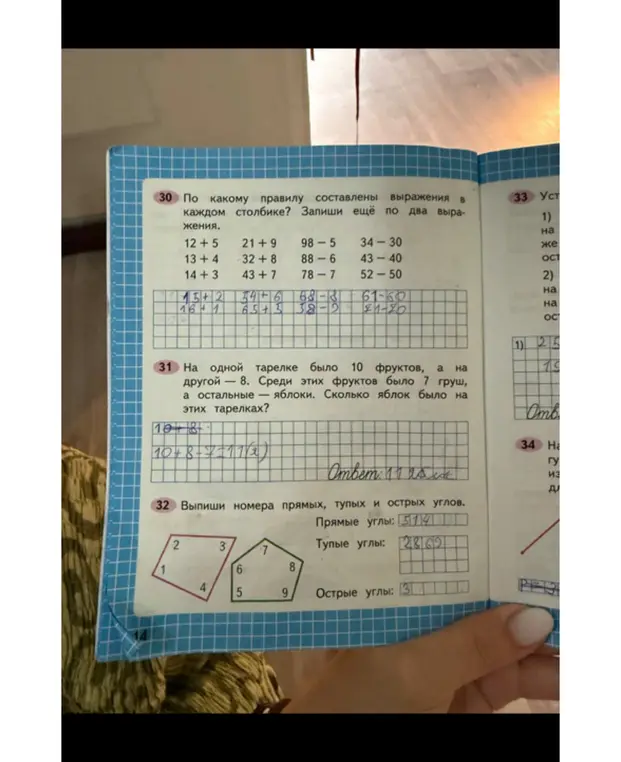 30 По какому правилу составлены выражения в
каждом столбике? Запиши ещё по два выра-
жения.
12 + 5 21 + 9 98 − 5 34 − 30
13 + 4 32 + 8 88 − 6 43 − 40
14 + 3 43 + 7 78 − 7 52 − 50
15+2 54+6 68-8 61-60
16+1 65+5 58-9 71-70
31 На одной тарелке было 10 фруктов, а на
другой — 8. Среди этих фруктов было 7 груш,
а остальные — яблоки. Сколько яблок было на
этих тарелках?
10+8
10+8-7=11(я)
Ответ: 11
32 Выпиши номера прямых, тупых и острых углов.
Прямые углы: 514
Тупые углы:
Острые углы: 3
2 3 7
1 6 8
4 5 9
14
33 Уст
1)
на
же
ост
2)
на
на
ос
1) 25
15
Отв
34 На
гу
из
дл